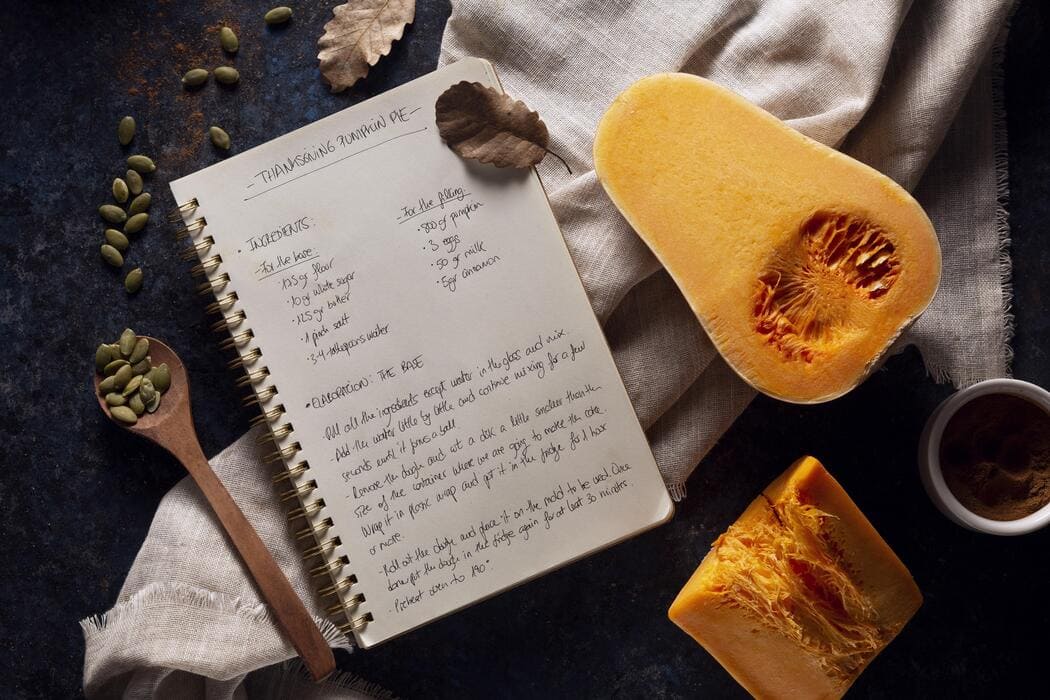 - THANKSGIVING PUMPKIN PIE -
• INGREDIENTS:
- For the base:
· 125 gr floor
· 10 gr white sugar
· 125 gr butter
· 1 pinch salt
· 3-4 tablespoons water
- For the filling:
· 800 gr pumpkin
· 3 eggs
· 50 gr milk
· 5gr cinnamon
• ELABORACIÓN: THE BASE
- Put all the ingredients except water in the glass and mix.
Add the water little by little and continue mixing for a few
seconds until it forms a ball.
- Remove the dough and cut a disk a little smaller than the
size of the container where we are going to make the cake.
Wrap it in plastic wrap and put it in the fridge for 1 hour
or more.
- Roll out the dough and place it on the mold to be used. Once
done put the dough in the fridge again for at least 30 minutes.
- Preheat oven to 180°.